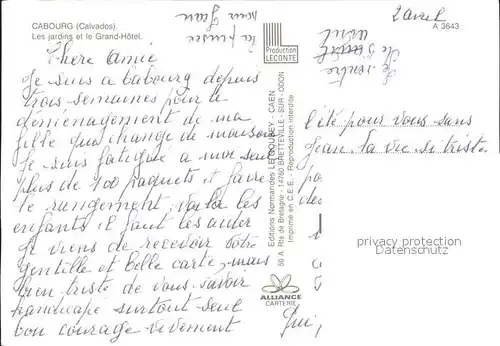 CABOURG (Calvados).
Les jardins et le Grand-Hôtel.
2 avril
A 3643
Chere Amie
Je suis a Cabourg depuis
trois semaines pour le
déménagement de ma
fille qui change de maison
Je suis fatigué a moi seul
plus de 100 paquets et faire
le rangement, voila les
enfants il faut les aider
Je viens de recevoir votre
gentille et belle carte, mais
bien triste de vous savoir
handicapé surtout seul
bon courage vivement
l'été pour vous sans
Jean. la vie es triste
Je rentre
avril
Production
LECONTE
Editions Normandes LE GOUBEY - CAEN
50 A. Rte de Bretagne - 14760 BRETTEVILLE - SUR - ODON
Imprimé en C.E.E. - Reproduction interdite
ALLIANCE
CARTERIE
privacy protection
Datenschutz